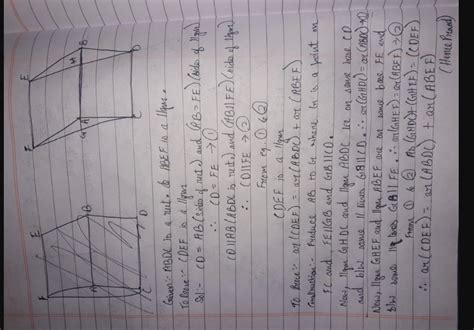 F E
A B
C D
E F
G A H B
C D
Given:- ABDC is a rect. & ABEF is a llgm.
To Prove:- CDEF is a llgm
Sol:- CD = AB (sides of rect.) and (AB = FE) (sides of llgm)
∴ CD = FE → ①
CD||AB (ABDC is rect.) and (AB||FE) (sides of llgm)
∴ CD||FE → ②
From eq. ① & ②
CDEF is a llgm
To Prove:- ar(CDEF) = ar(ABDC) + ar(ABEF)
Construction:- Produce AB to G where G is a point on
FC and FE||GB and GB||CD.
Now, llgm GHDC and llgm ABDC are on same base CD
and b/w same ll lines GB||CD. ∴ ar(GHDC) = ar(ABDC) → ①
Now, llgm GHEF and llgm ABEF are on same base FE and
b/w same ll lines GB||FE. ∴ ar(GHEF) = ar(ABEF) → ②
From ① & ② As (GHDC) + (GHEF) = (CDEF)
∴ ar(CDEF) = ar(ABDC) + ar(ABEF)
(Hence Proved)